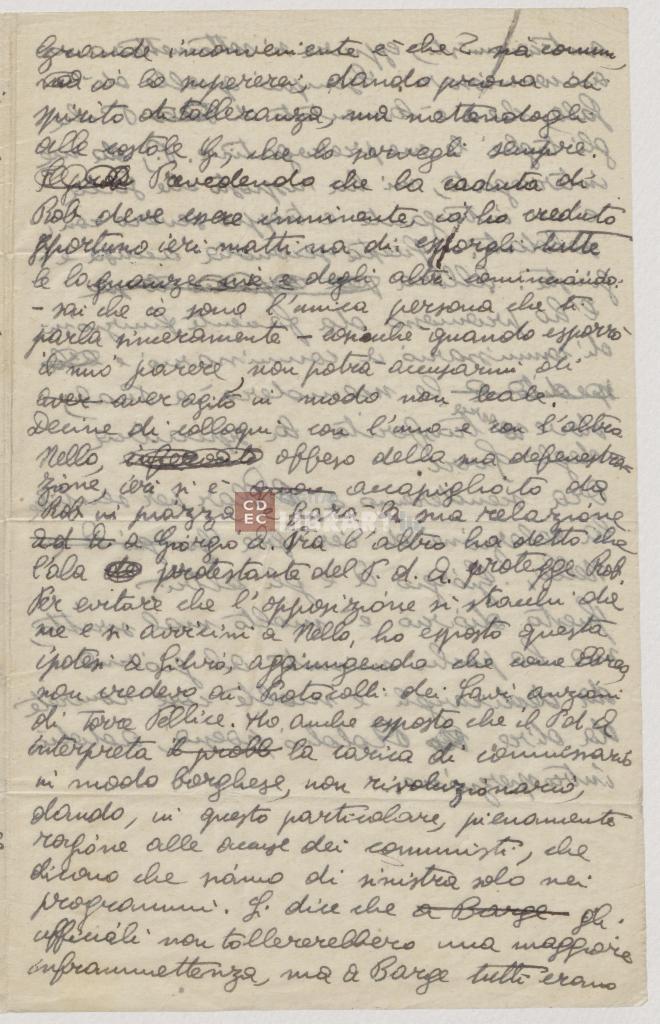 grande inconveniente è che è comuni,
ma io lo supererei, dando prova di
spirito di tolleranza, ma mettendogli
alle costole G. che lo sorvegli sempre.
Prevedendo che la caduta di
Rob. deve essere imminente, io ho creduto
opportuno ieri mattina di esporgli tutte
le lagnanze mie e degli altri cominciando:
- sai che io sono l'unica persona che ti
parla sinceramente - cosicché quando esporrò
il mio parere, non potrà accusarmi di
aver aver agito in modo non leale.
Decine di colloqui con l'uno e con l'altro
Nello, offeso della sua defenestra-
zione, ieri si è accapigliato da
Rob in piazza e farà la sua relazione
ad a Giorgio A. Tra l'altro ha detto che
l'ala protestante del P. d. A. protegge Rob.
Per evitare che l'opposizione si stacchi da
me e si avvicini a Nello, ho esposto questa
ipotesi a Silvio, aggiungendo che come Ebreo
non credevo ai Protocolli dei Savi anziani
di Torre Pellice. Ho anche esposto che il P d A
interpreta il probl la carica di commissario
in modo borghese, non rivoluzionario,
dando, in questo particolare, pienamente
ragione alle accuse dei comunisti, che
dicono che siamo di sinistra solo nei
programmi. Si dice che a Barge gli
ufficiali non tollererebbero una maggiore
inframmettenza, ma a Barge tutti erano
CD
EC